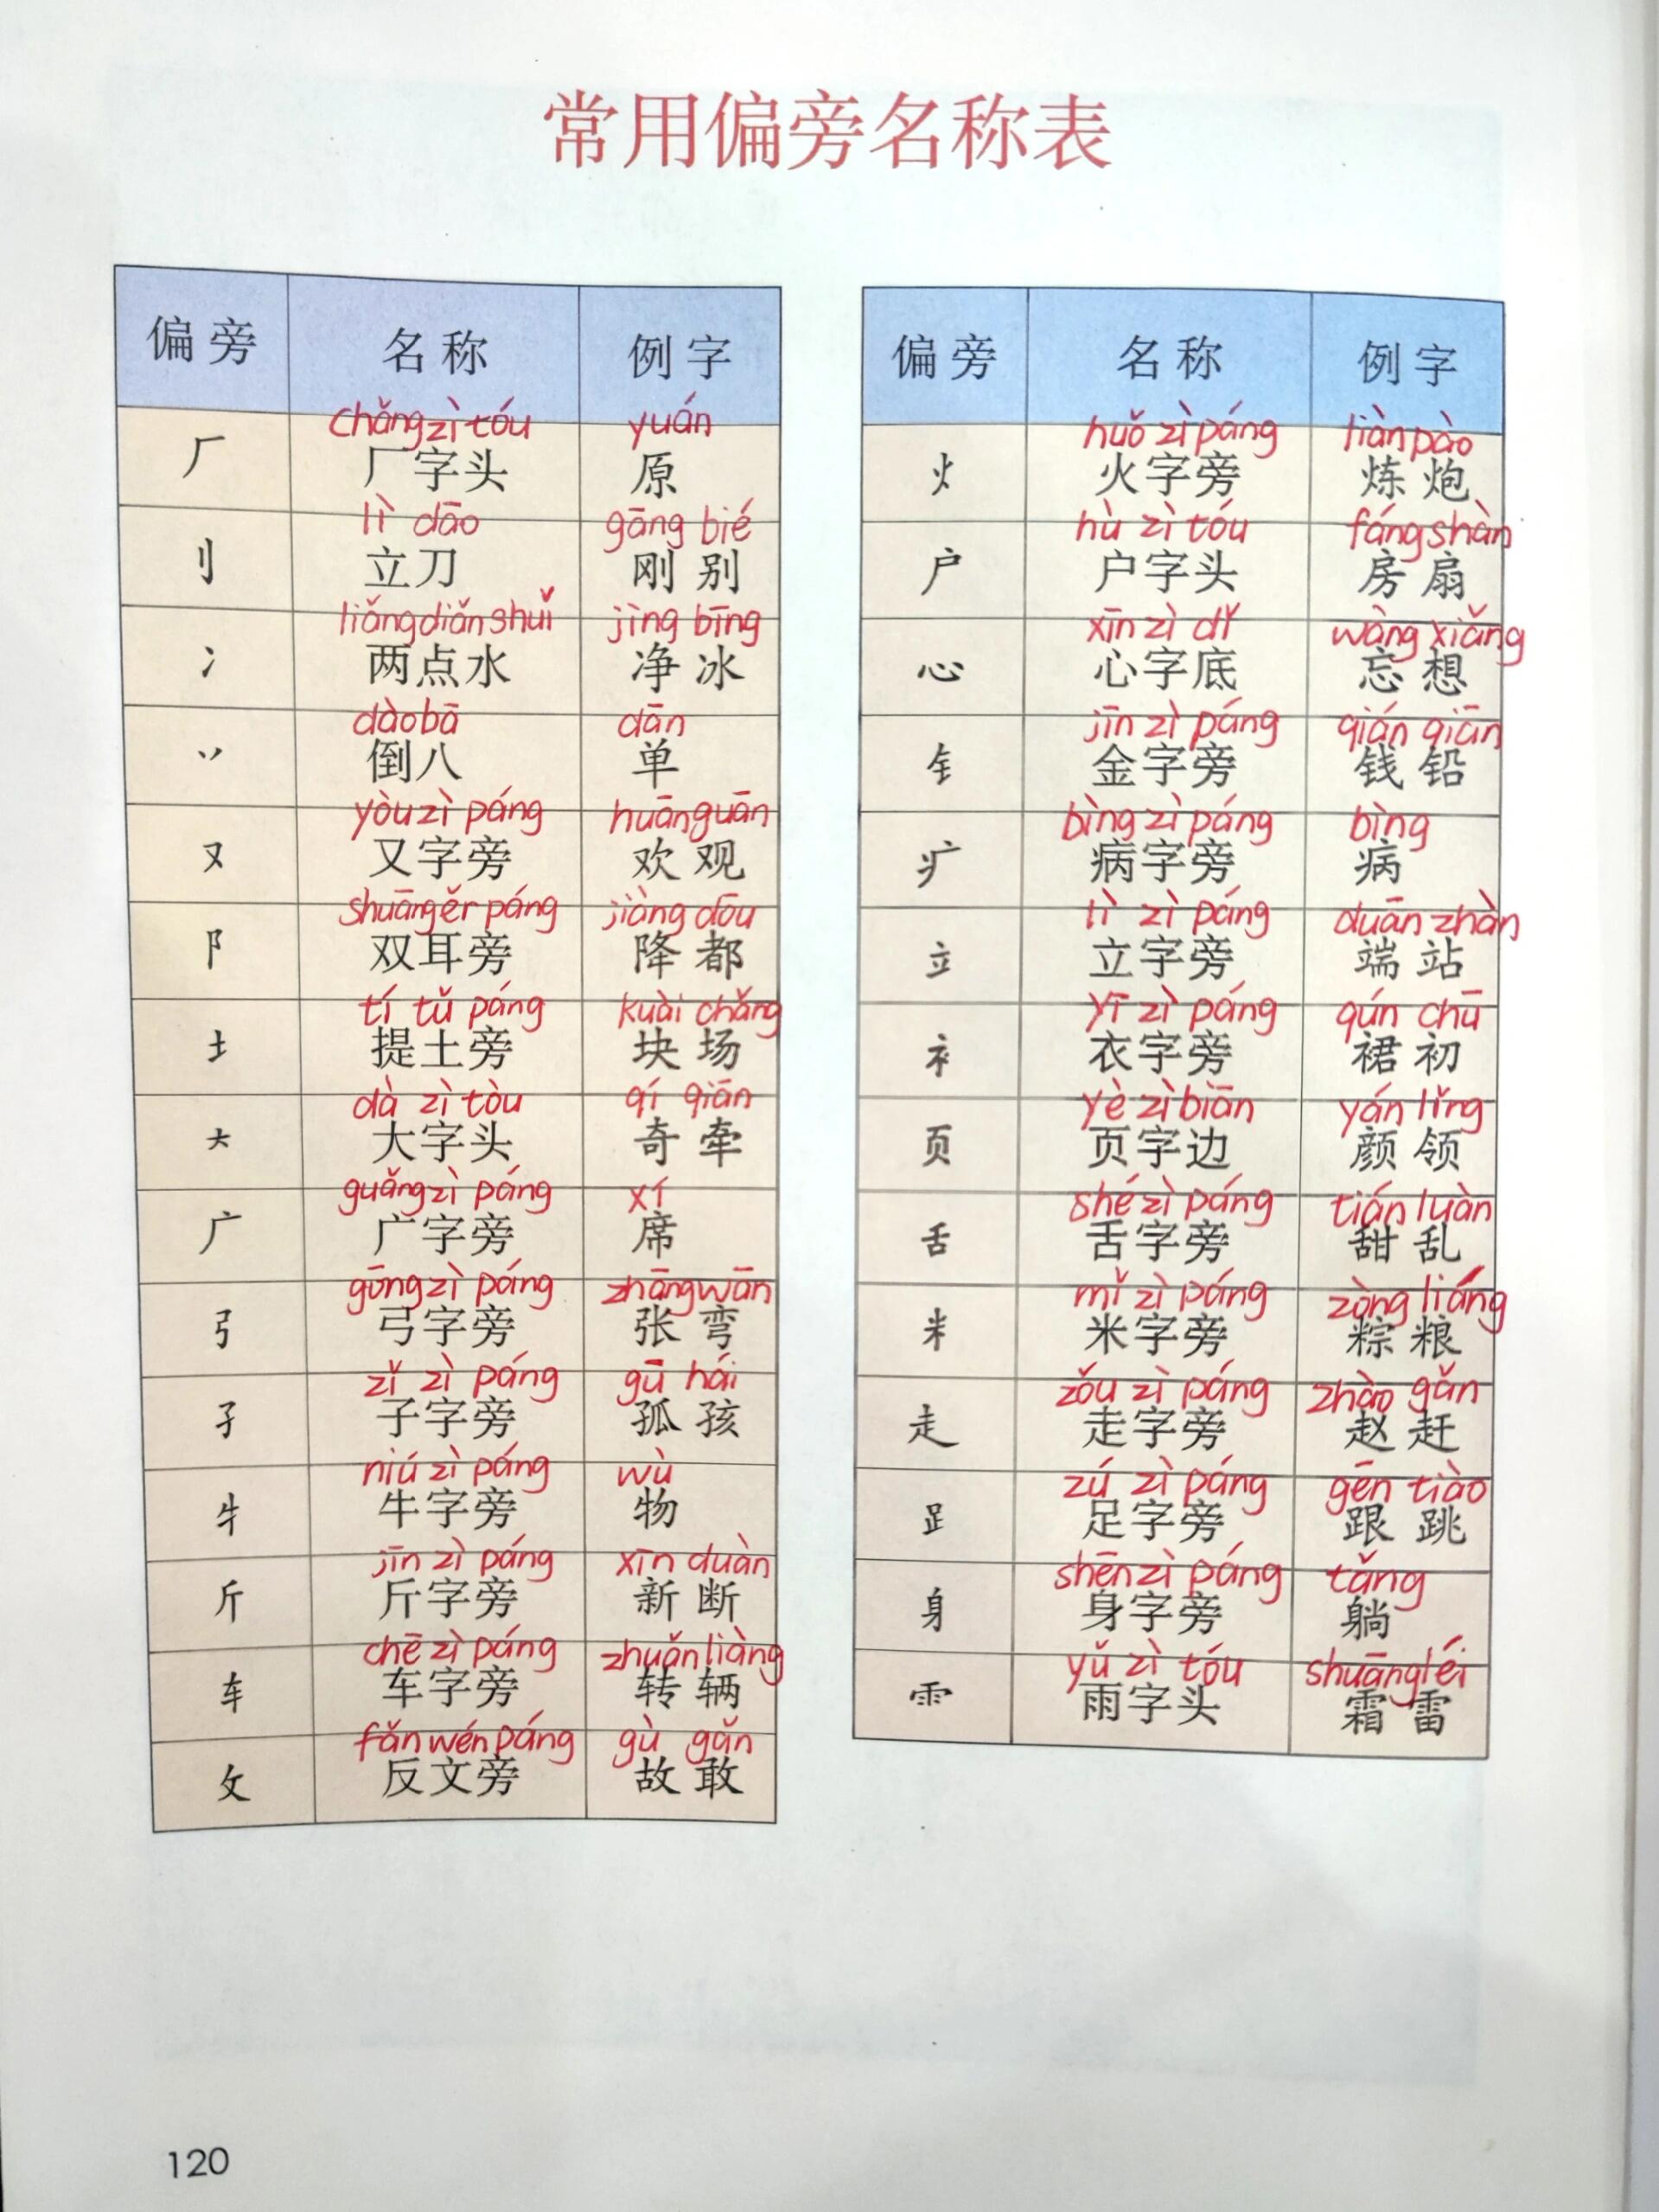 常用偏旁名称表
偏旁 名称 例字
chǎng zì tóu yuán
厂 厂字头 原
lì dāo gāng bié
刂 立刀 刚 别
liǎng diǎn shuǐ jìng bīng
冫 两点水 净 冰
dào bā dān
丷 倒八 单
yòu zì páng huān guān
又 又字旁 欢 观
shuāng ěr páng jiàng dōu
阝 双耳旁 降 都
tí tǔ páng kuài chǎng
土 提土旁 块 场
dà zì tòu qí qiān
大 大字头 奇 牵
guǎng zì páng xí
广 广字旁 席
gōng zì páng zhāng wān
弓 弓字旁 张 弯
zǐ zì páng gū hái
孑 子字旁 孤 孩
niú zì páng wù
牜 牛字旁 物
jīn zì páng xīn duàn
斤 斤字旁 新 断
chē zì páng zhuǎn liàng
车 车字旁 转 辆
fǎn wén páng gù gǎn
攵 反文旁 故 敢
偏旁 名称 例字
huǒ zì páng liàn pào
火 火字旁 炼 炮
hù zì tóu fáng shàn
户 户字头 房 扇
xīn zì dǐ wàng xiǎng
心 心字底 忘 想
jīn zì páng qián qiān
钅 金字旁 钱 铅
bìng zì páng bìng
疒 病字旁 病
lì zì páng duān zhàn
立 立字旁 端 站
yī zì páng qún chū
衤 衣字旁 裙 初
yè zì biān yán lǐng
页 页字边 颜 领
shé zì páng tián luàn
舌 舌字旁 甜 乱
mǐ zì páng zòng liáng
米 米字旁 粽 粮
zǒu zì páng zhào gǎn
走 走字旁 赵 赶
zú zì páng gēn tiào
𧾷 足字旁 跟 跳
shēn zì páng tǎng
身 身字旁 躺
yǔ zì tóu shuāng léi
雨 雨字头 霜 雷
120